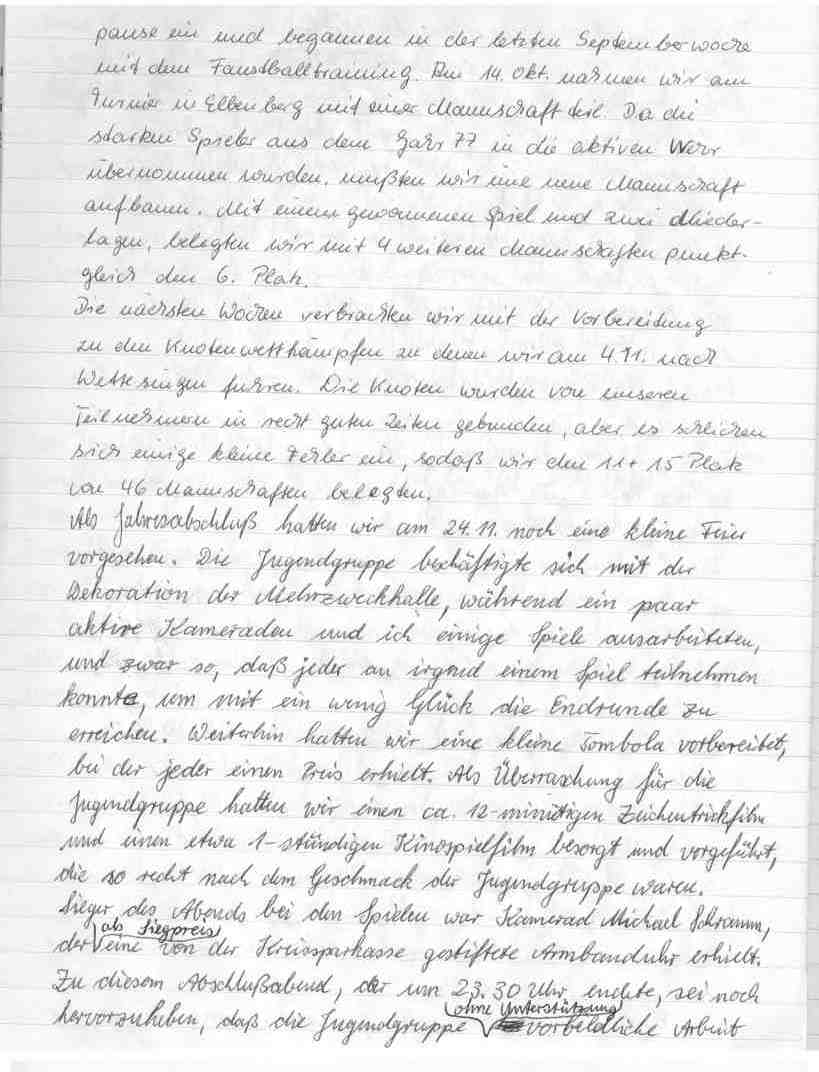 pause ein und begannen in der letzten Septemberwoche
mit dem Faustballtraining. Am 14. Okt. nahmen wir am
Turnier in Elbenberg mit einer Mannschaft teil. Da die
starken Spieler aus dem Jahr 77 in die aktiven Wehr
übernommen wurden, mußten wir eine neue Mannschaft
aufbauen. Mit einem gewonnenen Spiel und zwei Nieder-
lagen, belegten wir mit 4 weiteren Mannschaften punkt-
gleich den 6. Platz.
Die nächsten Wochen verbrachten wir mit der Vorbereitung
zu den Knotenwettkämpfen zu denen wir am 4.11. nach
Wettesingen fuhren. Die Knoten wurden von unseren
Teilnehmern in recht guten Zeiten gebunden, aber es schlichen
sich einige kleine Fehler ein, sodaß wir den 11 + 15 Platz
von 46 Mannschaften belegten.
Als Jahresabschluß hatten wir am 24.11. noch eine kleine Feier
vorgesehen. Die Jugendgruppe beschäftigte sich mit der
Dekoration der Mehrzweckhalle, während ein paar
aktive Kameraden und ich einige Spiele ausarbeiteten,
und zwar so, daß jeder an irgend einem Spiel teilnehmen
konnte, um mit ein wenig Glück die Endrunde zu
erreichen. Weiterhin hatten wir eine kleine Tombola vorbereitet,
bei der jeder einen Preis erhielt. Als Überraschung für die
Jugendgruppe hatten wir einen ca. 12-minütigen Zeichentrickfilm
und einen etwa 1-stündigen Kinospielfilm besorgt und vorgeführt,
die so recht nach dem Geschmack der Jugendgruppe waren.
Sieger des Abends bei den Spielen war Kamerad Michael Schramm,
der als Siegpreis eine von der Kreissparkasse gestiftete Armbanduhr erhielt.
Zu diesem Abschlußabend, der um 23.30 Uhr endete, sei noch
hervorzuheben, daß die Jugendgruppe ohne Unterstützung vorbildliche Arbeit